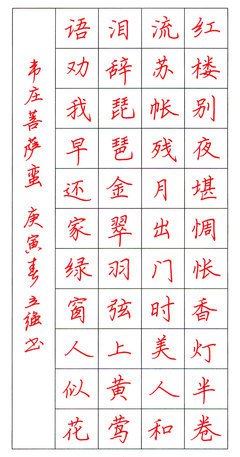 红楼别夜堪惆怅香灯半卷
流苏帐残月出门时美人和
泪辞琵琶金翠羽弦上黄莺
语劝我早还家绿窗人似花
韦庄菩萨蛮 庚寅春立强书